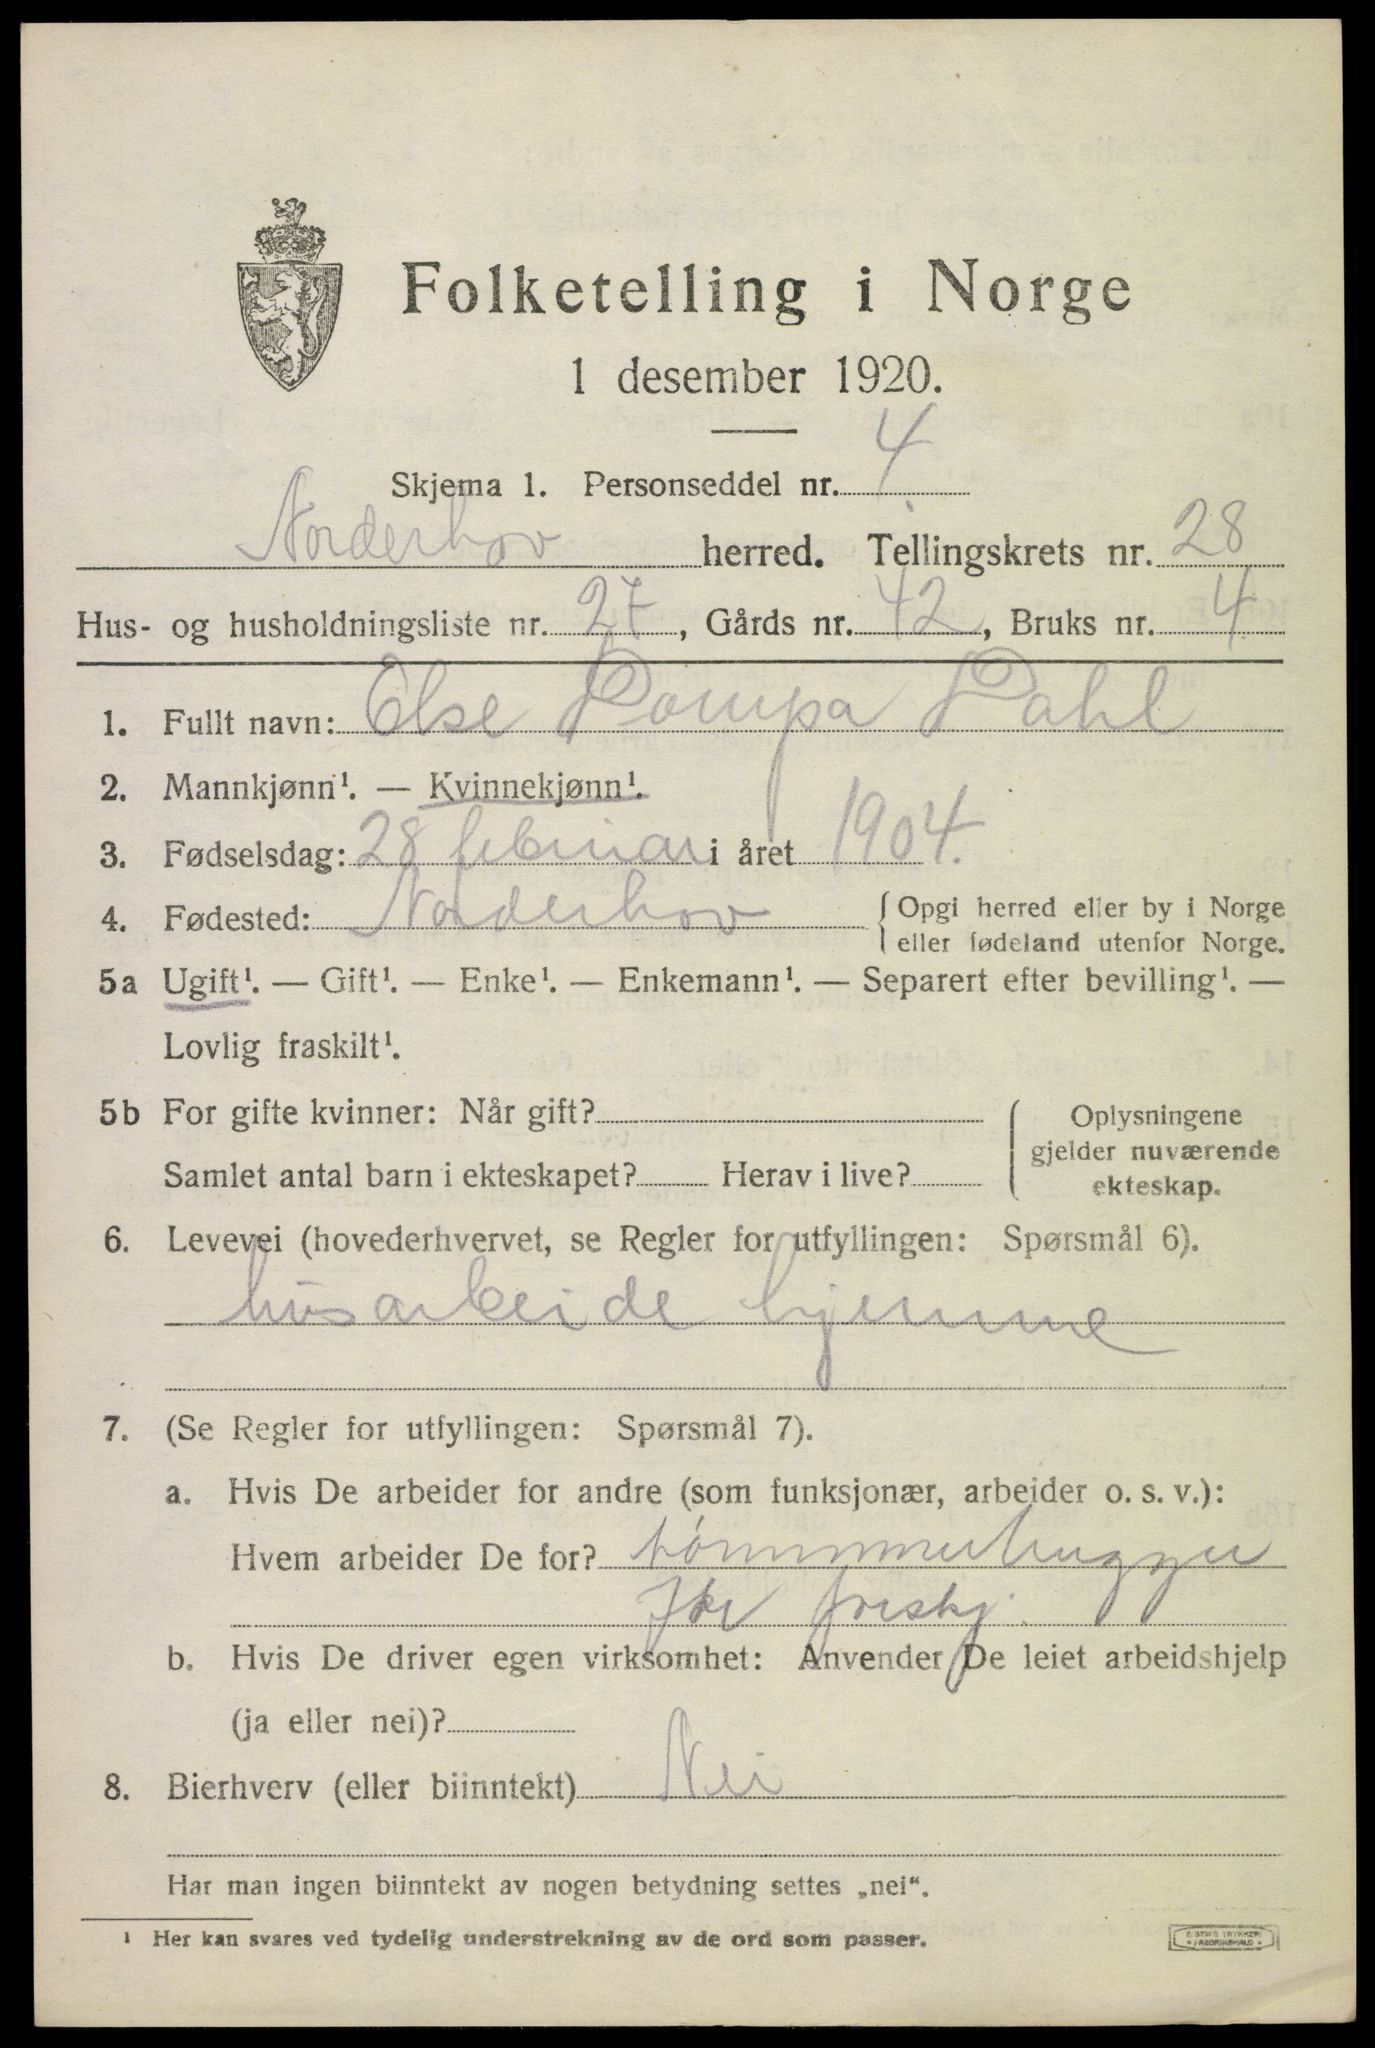 Folketelling i Norge
1 desember 1920.
Skjema 1. Personseddel nr. 4
Norderhov herred. Tellingskrets nr. 28
Hus- og husholdningsliste nr. 27, Gårds nr. 42, Bruks nr. 4
1. Fullt navn: Else Pompa Dahl
2. Mannkjønn¹. — Kvinnekjønn¹.
3. Fødselsdag: 28 februar i året 1904.
4. Fødested: Norderhov { Opgi herred eller by i Norge
eller fødeland utenfor Norge.
5a Ugift¹. — Gift¹. — Enke¹. — Enkemann¹. — Separert efter bevilling¹. —
Lovlig fraskilt¹.
5b For gifte kvinner: Når gift?
Samlet antal barn i ekteskapet? Herav i live?
Oplysningene
gjelder nuværende
ekteskap.
6. Levevei (hovederhvervet, se Regler for utfyllingen: Spørsmål 6).
husarbeide hjemme
7. (Se Regler for utfyllingen: Spørsmål 7).
a. Hvis De arbeider for andre (som funksjonær, arbeider o. s. v.):
Hvem arbeider De for? tømmerhugger
b. Hvis De driver egen virksomhet: Anvender De leiet arbeidshjelp
(ja eller nei)?
8. Bierhverv (eller biinntekt) Nei
Har man ingen biinntekt av nogen betydning settes „nei“.
¹ Her kan svares ved tydelig understrekning av de ord som passer.